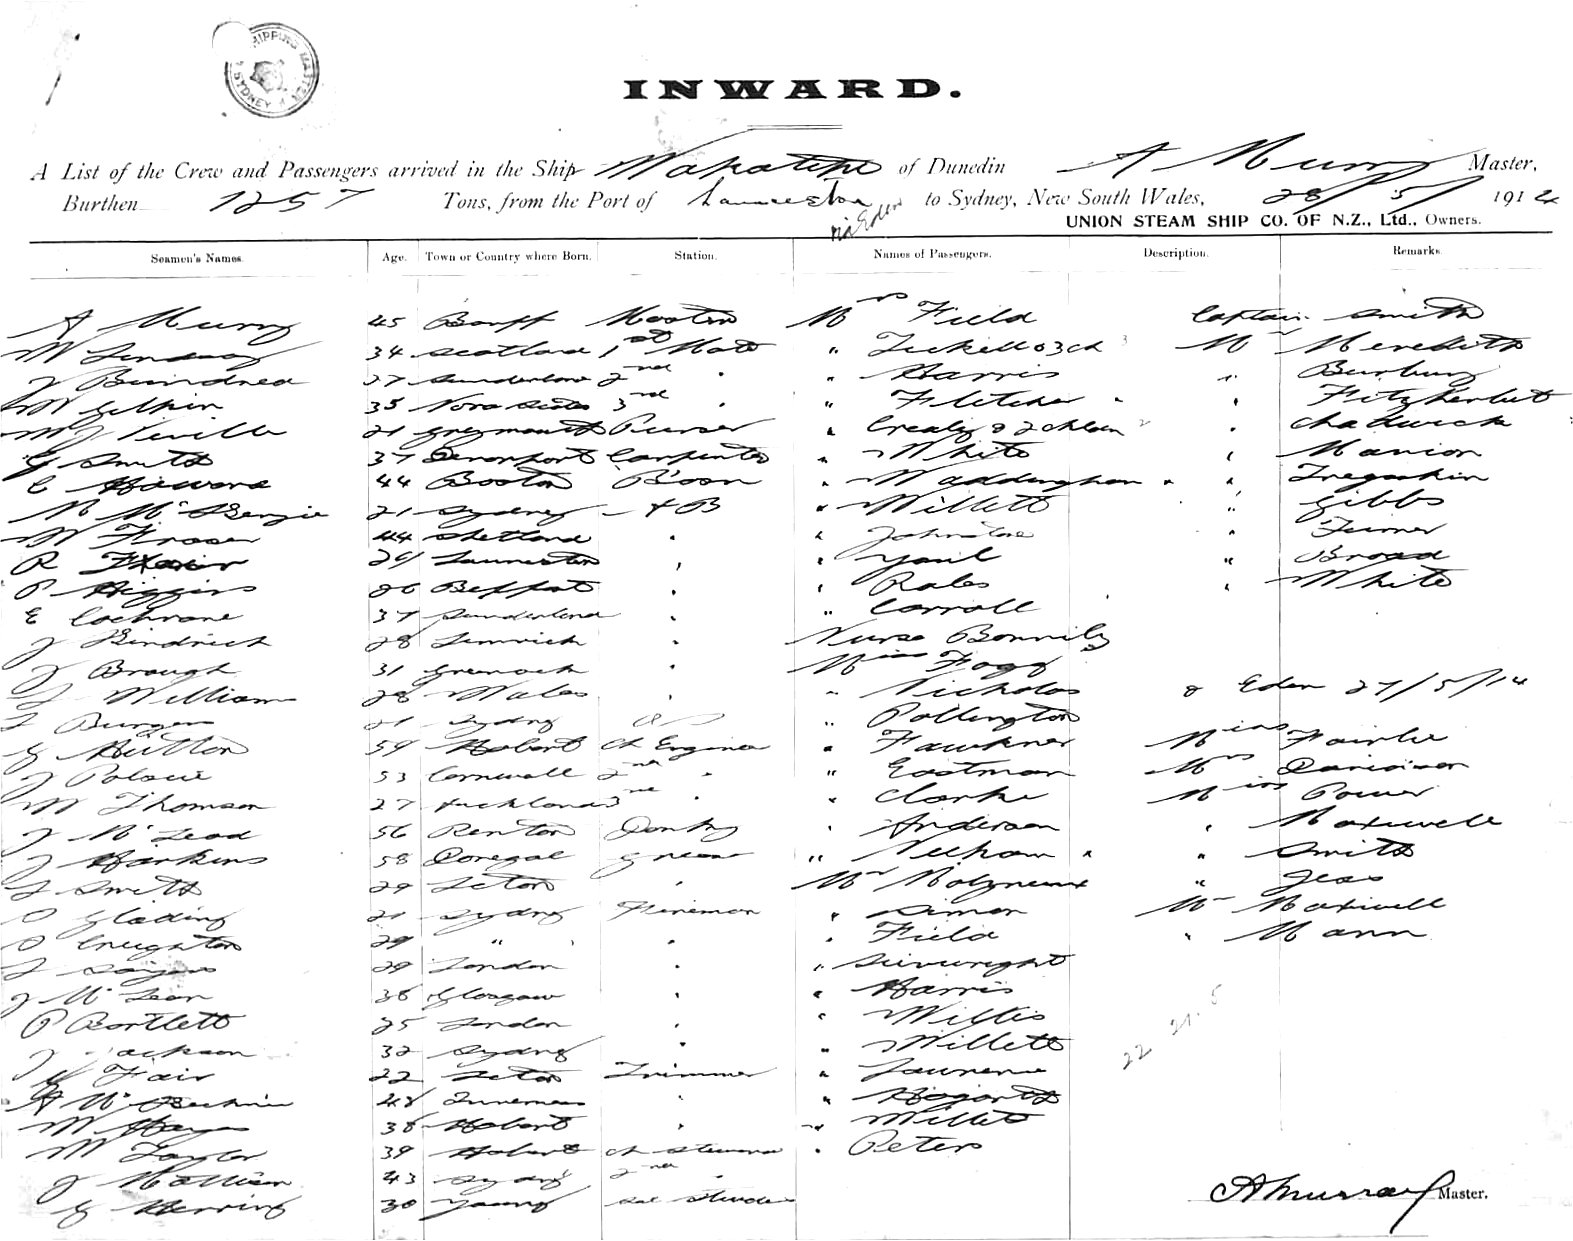 SHIPPING MASTER
SYDNEY
INWARD.
A List of the Crew and Passengers arrived in the Ship Wakatipu of Dunedin A Murray Master,
Burthen 1257 Tons, from the Port of Launceston via Eden to Sydney, New South Wales, 28/5/1914
UNION STEAM SHIP CO. OF N.Z., Ltd., Owners.
Seamen's Names. Age. Town or Country where Born. Station. Names of Passengers. Description. Remarks.
A Murray 45 Banff Master Mrs Field Captain Smith
W Lindsay 34 Scotland 1st Mate " Tickell & 3 ch 3 Mr Meredith
J 27 Sunderland 2nd " " Harris " Burbury
W Gilkin 35 Nova Scotia 3rd " " Fletcher " Fitzherbert
W J Neville 21 Greymouth Purser " Crealy & 2 children 2 " Chadwick
G Smith 37 Devonport Carpenter " White " Manion
C Howard 44 Boston B'son " Waddingham " Tregaskin
M McKenzie 21 Sydney AB " Willett " Gibbs
W Fraser 44 Shetland " " Johnstone " Turner
R 24 Launceston " " Youl " Broad
P Higgins 26 Belfast " " Rales " White
E Cochrane 37 Sunderland " " Carroll
J 28 Limrick " Nurse Bonnily
J Brough 31 Greenock " Miss Fogg
J William 28 Wales " " Nicholas & Eden 27/5/14
J Burgess 21 Sydney OS " Pollington
G Hutton 59 Hobart Ch Engineer " Fawkner Miss Fairlie
J Polowe 53 Cornwall 2nd " " Eastman Mrs Davidson
W Thomson 27 Auckland 3rd " " Clarke Miss Power
J McLeod 56 Renton Donky " Anderson " Maxwell
J Harkins 58 Donegal Greaser " Neeham " " Smith
J Smith 29 Seton " Mr Molyneaux " Jess
O Glading 21 Sydney Fireman " Simon Mr Maxwell
O Creighton 29 " " " Field " Mann
J Sayers 29 London " " Sievwright
J McLean 36 Glasgow " " Harris
P Bartlett 25 London " " Willis
J Jackson 32 Sydney " " Willett
J Fair 22 Seton Trimmer " Lawrence
A McKechnie 48 " " Hogarth
W Hayes 38 Hobart " " Willett
W Taylor 39 Hobart Ch Steward " Peters
J 43 Sydney 2nd "
G Herring 30 Young
22 21. 5
A Murray Master.